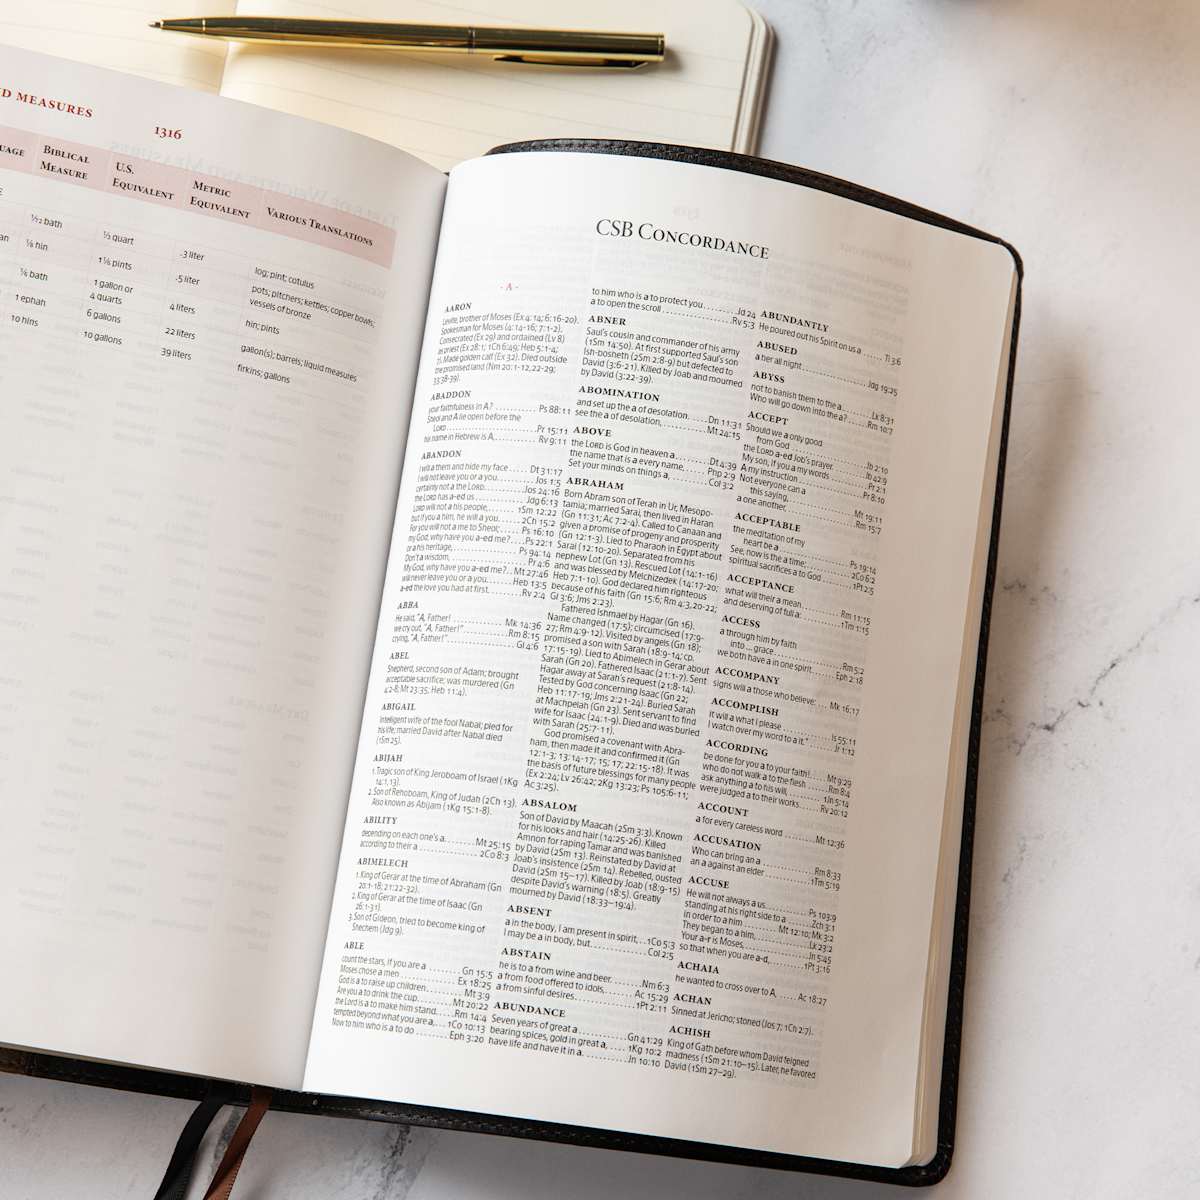 D MEASURES
1316
UAGE
BIBLICAL
MEASURE
U.S.
EQUIVALENT
METRIC
EQUIVALENT
VARIOUS TRANSLATIONS
¹⁄₁₂ bath
⅓ quart
.3 liter
log; pint; cotulus
⅙ hin
1⅙ pints
.5 liter
pots; pitchers; kettles; copper bowls;
vessels of bronze
⅙ bath
1 gallon or
4 quarts
4 liters
hin; pints
1 ephah
6 gallons
22 liters
gallon(s); barrels; liquid measures
10 hins
10 gallons
39 liters
firkins; gallons
CSB CONCORDANCE
- A -
AARON
Levite, brother of Moses (Ex 4:14; 6:16-20).
Spokesman for Moses (4:14-16; 7:1-2).
Consecrated (Ex 29) and ordained (Lv 8)
as priest (Ex 28:1; 1Ch 6:49; Heb 5:1-4;
7). Made golden calf (Ex 32). Died outside
the promised land (Nm 20:1-12,22-29;
33:38-39).
ABADDON
your faithfulness in A? Ps 88:11
Sheol and A lie open before the
LORD Pr 15:11
his name in Hebrew is A, Rv 9:11
ABANDON
I will a them and hide my face Dt 31:17
I will not leave you or a you. Jos 1:5
certainly not a the LORD Jos 24:16
the LORD has a-ed us Jdg 6:13
LORD will not a his people, 1Sm 12:22
but if you a him, he will a you. 2Ch 15:2
For you will not a me to Sheol; Ps 16:10
my God, why have you a-ed me? Ps 22:1
or a his heritage, Ps 94:14
Don't a wisdom, Pr 4:6
My God, why have you a-ed me? Mt 27:46
will never leave you or a you. Heb 13:5
a-ed the love you had at first. Rv 2:4
ABBA
He said, "A, Father! Mk 14:36
we cry out, "A, Father!" Rm 8:15
crying, "A, Father!" Gl 4:6
ABEL
Shepherd, second son of Adam; brought
acceptable sacrifice; was murdered (Gn
4:2-8; Mt 23:35; Heb 11:4).
ABIGAIL
Intelligent wife of the fool Nabal; pled for
his life; married David after Nabal died
(1Sm 25).
ABIJAH
1. Tragic son of King Jeroboam of Israel (1Kg
14:1,13).
2. Son of Rehoboam, King of Judah (2Ch 13).
Also known as Abijam (1Kg 15:1-8).
ABILITY
depending on each one's a. Mt 25:15
according to their a 2Co 8:3
ABIMELECH
1. King of Gerar at the time of Abraham (Gn
20:1-18; 21:22-32).
2. King of Gerar at the time of Isaac (Gn
26:1-31).
3. Son of Gideon, tried to become king of
Shechem (Jdg 9).
ABLE
count the stars, if you are a Gn 15:5
Moses chose a men Ex 18:25
God is a to raise up children Mt 3:9
Are you a to drink the cup Mt 20:22
the Lord is a to make him stand. Rm 14:4
tempted beyond what you are a, 1Co 10:13
Now to him who is a to do Eph 3:20
to him who is a to protect you Jd 24
a to open the scroll Rv 5:3
ABNER
Saul's cousin and commander of his army
(1Sm 14:50). At first supported Saul's son
Ish-bosheth (2Sm 2:8-9) but defected to
David (3:6-21). Killed by Joab and mourned
by David (3:22-39).
ABOMINATION
and set up the a of desolation. Dn 11:31
see the a of desolation, Mt 24:15
ABOVE
the LORD is God in heaven a Dt 4:39
the name that is a every name, Php 2:9
Set your minds on things a, Col 3:2
ABRAHAM
Born Abram son of Terah in Ur, Mesopo-
tamia; married Sarai, then lived in Haran
(Gn 11:31; Ac 7:2-4). Called to Canaan and
given a promise of progeny and prosperity
(Gn 12:1-3). Lied to Pharaoh in Egypt about
Sarai (12:10-20). Separated from his
nephew Lot (Gn 13). Rescued Lot (14:1-16)
and was blessed by Melchizedek (14:17-20;
Heb 7:1-10). God declared him righteous
because of his faith (Gn 15:6; Rm 4:3,20-22;
Gl 3:6; Jms 2:23).
Fathered Ishmael by Hagar (Gn 16).
Name changed (17:5); circumcised (17:9-
27; Rm 4:9-12). Visited by angels (Gn 18);
promised a son with Sarah (18:9-14; cp.
17:15-19). Lied to Abimelech in Gerar about
Sarah (Gn 20). Fathered Isaac (21:1-7). Sent
Hagar away at Sarah's request (21:8-14).
Tested by God concerning Isaac (Gn 22;
Heb 11:17-19; Jms 2:21-24). Buried Sarah
at Machpelah (Gn 23). Sent servant to find
wife for Isaac (24:1-9). Died and was buried
with Sarah (25:7-11).
God promised a covenant with Abra-
ham, then made it and confirmed it (Gn
12:1-3; 13:14-17; 15; 17; 22:15-18). It was
the basis of future blessings for many people
(Ex 2:24; Lv 26:42; 2Kg 13:23; Ps 105:6-11;
Ac 3:25).
ABSALOM
Son of David by Maacah (2Sm 3:3). Known
for his looks and hair (14:25-26). Killed
Amnon for raping Tamar and was banished
by David (2Sm 13). Reinstated by David at
Joab's insistence (2Sm 14). Rebelled, ousted
David (2Sm 15–17). Killed by Joab (18:9-15)
despite David's warning (18:5). Greatly
mourned by David (18:33–19:4).
ABSENT
a in the body, I am present in spirit, 1Co 5:3
I may be a in body, but Col 2:5
ABSTAIN
he is to a from wine and beer. Nm 6:3
a from food offered to idols, Ac 15:29
a from sinful desires 1Pt 2:11
ABUNDANCE
Seven years of great a Gn 41:29
bearing spices, gold in great a, 1Kg 10:2
have life and have it in a. Jn 10:10
ABUNDANTLY
He poured out his Spirit on us a Ti 3:6
ABUSED
a her all night Jdg 19:25
ABYSS
not to banish them to the a. Lk 8:31
Who will go down into the a? Rm 10:7
ACCEPT
Should we a only good
from God Jb 2:10
the LORD a-ed Job's prayer. Jb 42:9
My son, if you a my words Pr 2:1
A my instruction Pr 8:10
Not everyone can a
this saying, Mt 19:11
a one another, Rm 15:7
ACCEPTABLE
the meditation of my
heart be a Ps 19:14
See, now is the a time; 2Co 6:2
spiritual sacrifices a to God 1Pt 2:5
ACCEPTANCE
what will their a mean Rm 11:15
and deserving of full a: 1Tm 1:15
ACCESS
a through him by faith
into ... grace Rm 5:2
we both have a in one spirit Eph 2:18
ACCOMPANY
signs will a those who believe: Mk 16:17
ACCOMPLISH
it will a what I please Is 55:11
I watch over my word to a it." Jr 1:12
ACCORDING
be done for you a to your faith! Mt 9:29
who do not walk a to the flesh Rm 8:4
ask anything a to his will, 1Jn 5:14
were judged a to their works Rv 20:12
ACCOUNT
a for every careless word Mt 12:36
ACCUSATION
Who can bring an a Rm 8:33
an a against an elder 1Tm 5:19
ACCUSE
He will not always a us Ps 103:9
standing at his right side to a Zch 3:1
in order to a him Mt 12:10; Mk 3:2
They began to a him, Lk 23:2
Your a-r is Moses, Jn 5:45
so that when you are a-d, 1Pt 3:16
ACHAIA
he wanted to cross over to A, Ac 18:27
ACHAN
Sinned at Jericho; stoned (Jos 7; 1Ch 2:7).
ACHISH
King of Gath before whom David feigned
madness (1Sm 21:10–15). Later, he favored
David (1Sm 27–29).